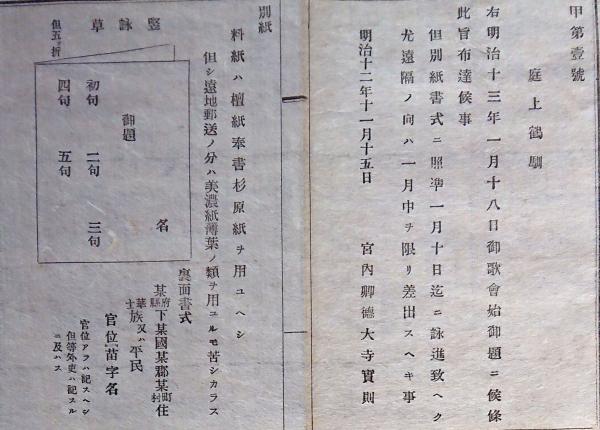 甲第壹號
庭上鶴馴
右明治十三年一月十八日御歌會始御題ニ候條
此旨布達候事
但別紙書式ニ照準一月十日迄ニ詠進致ヘク
尤遠隔ノ向ハ一月中ヲ限リ差出スヘキ事
明治十二年十一月十五日
宮内卿德大寺實則
別紙
料紙ハ檀紙奉書杉原紙ヲ用ユヘシ
但シ遠地郵送ノ分ハ美濃紙薄葉ノ類ヲ用ユルモ苦シカラス
竪詠草
但五ツ折
名
御題
初句 二句 三句
四句 五句
裏面書式
某府縣下某國某郡某町村住
華士族又ハ平民
官位苗字名
官位アラハ記スヘシ
但等外吏ハ記スル
ニ及ハス